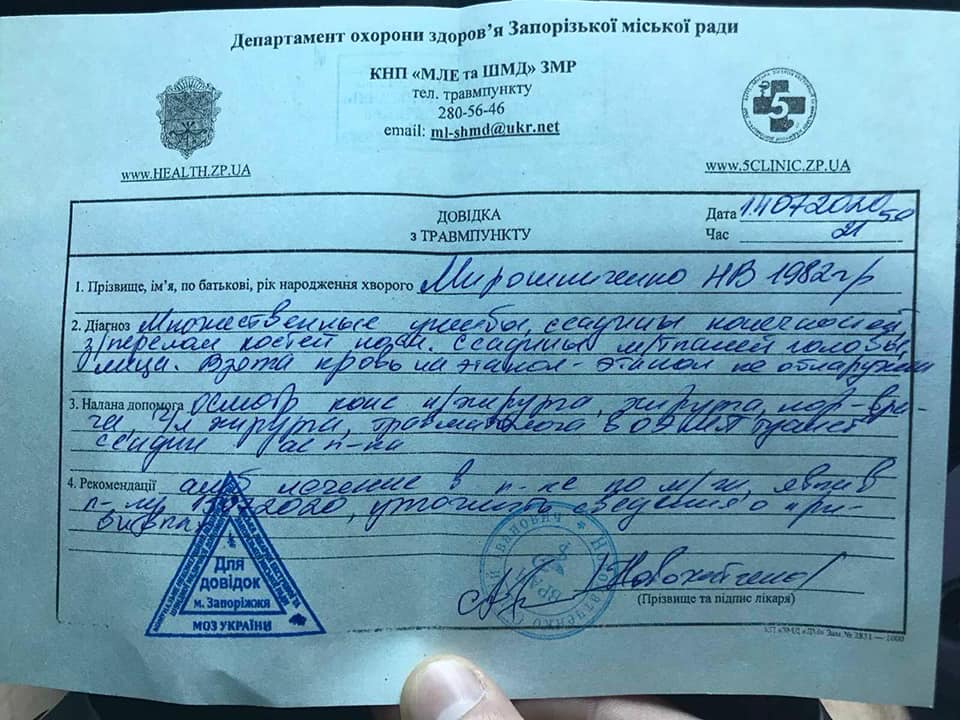 Департамент охорони здоров’я Запорізької міської ради
КНП «МЛЕ та ШМД» ЗМР
тел. травмпункту
280-56-46
email: ml-shmd@ukr.net
www.HEALTH.ZP.UA
5
www.5CLINIC.ZP.UA
ДОВІДКА
з ТРАВМПУНКТУ
Дата 14072020
Час 21 50
1. Прізвище, ім’я, по батькові, рік народження хворого Мирошниченко НВ 1982гр
2. Діагноз Множественные ушибы, ссадины конечностей
з/перелом костей носа. Ссадины м/тканей головы,
лица. Взята кровь на этанол - этанол не обнаружен
3. Надана допомога осмотр н/хирурга, хирурга, лор-вра-
ча, ч/л хирурга, травматолога туалет
ссадин
4. Рекомендації амб лечение в п-ке по м/ж, явка в
п-ку 15072020, уточнить сведения о при-
вивках
Для
довідок
м. Запоріжжя
МОЗ УКРАЇНИ
ВРАЧ
(Прізвище та підпис лікаря)